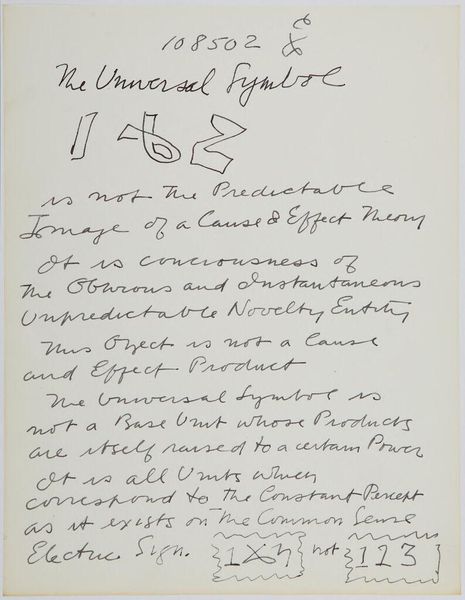 108502
The Universal Symbol
is not The Predictable
Image of a Cause & Effect Theory
It is conciousness of
The Obvious and Instantaneous
Unpredictable Novelty Entity
This Object is not a Cause
and Effect Product
The Universal Symbol is
not a Base Unit whose Products
are itself raised to a certain Power
It is all Units which
correspond to The Constant Percept
as it exists on The Common Sense
Electric Sign. not 123